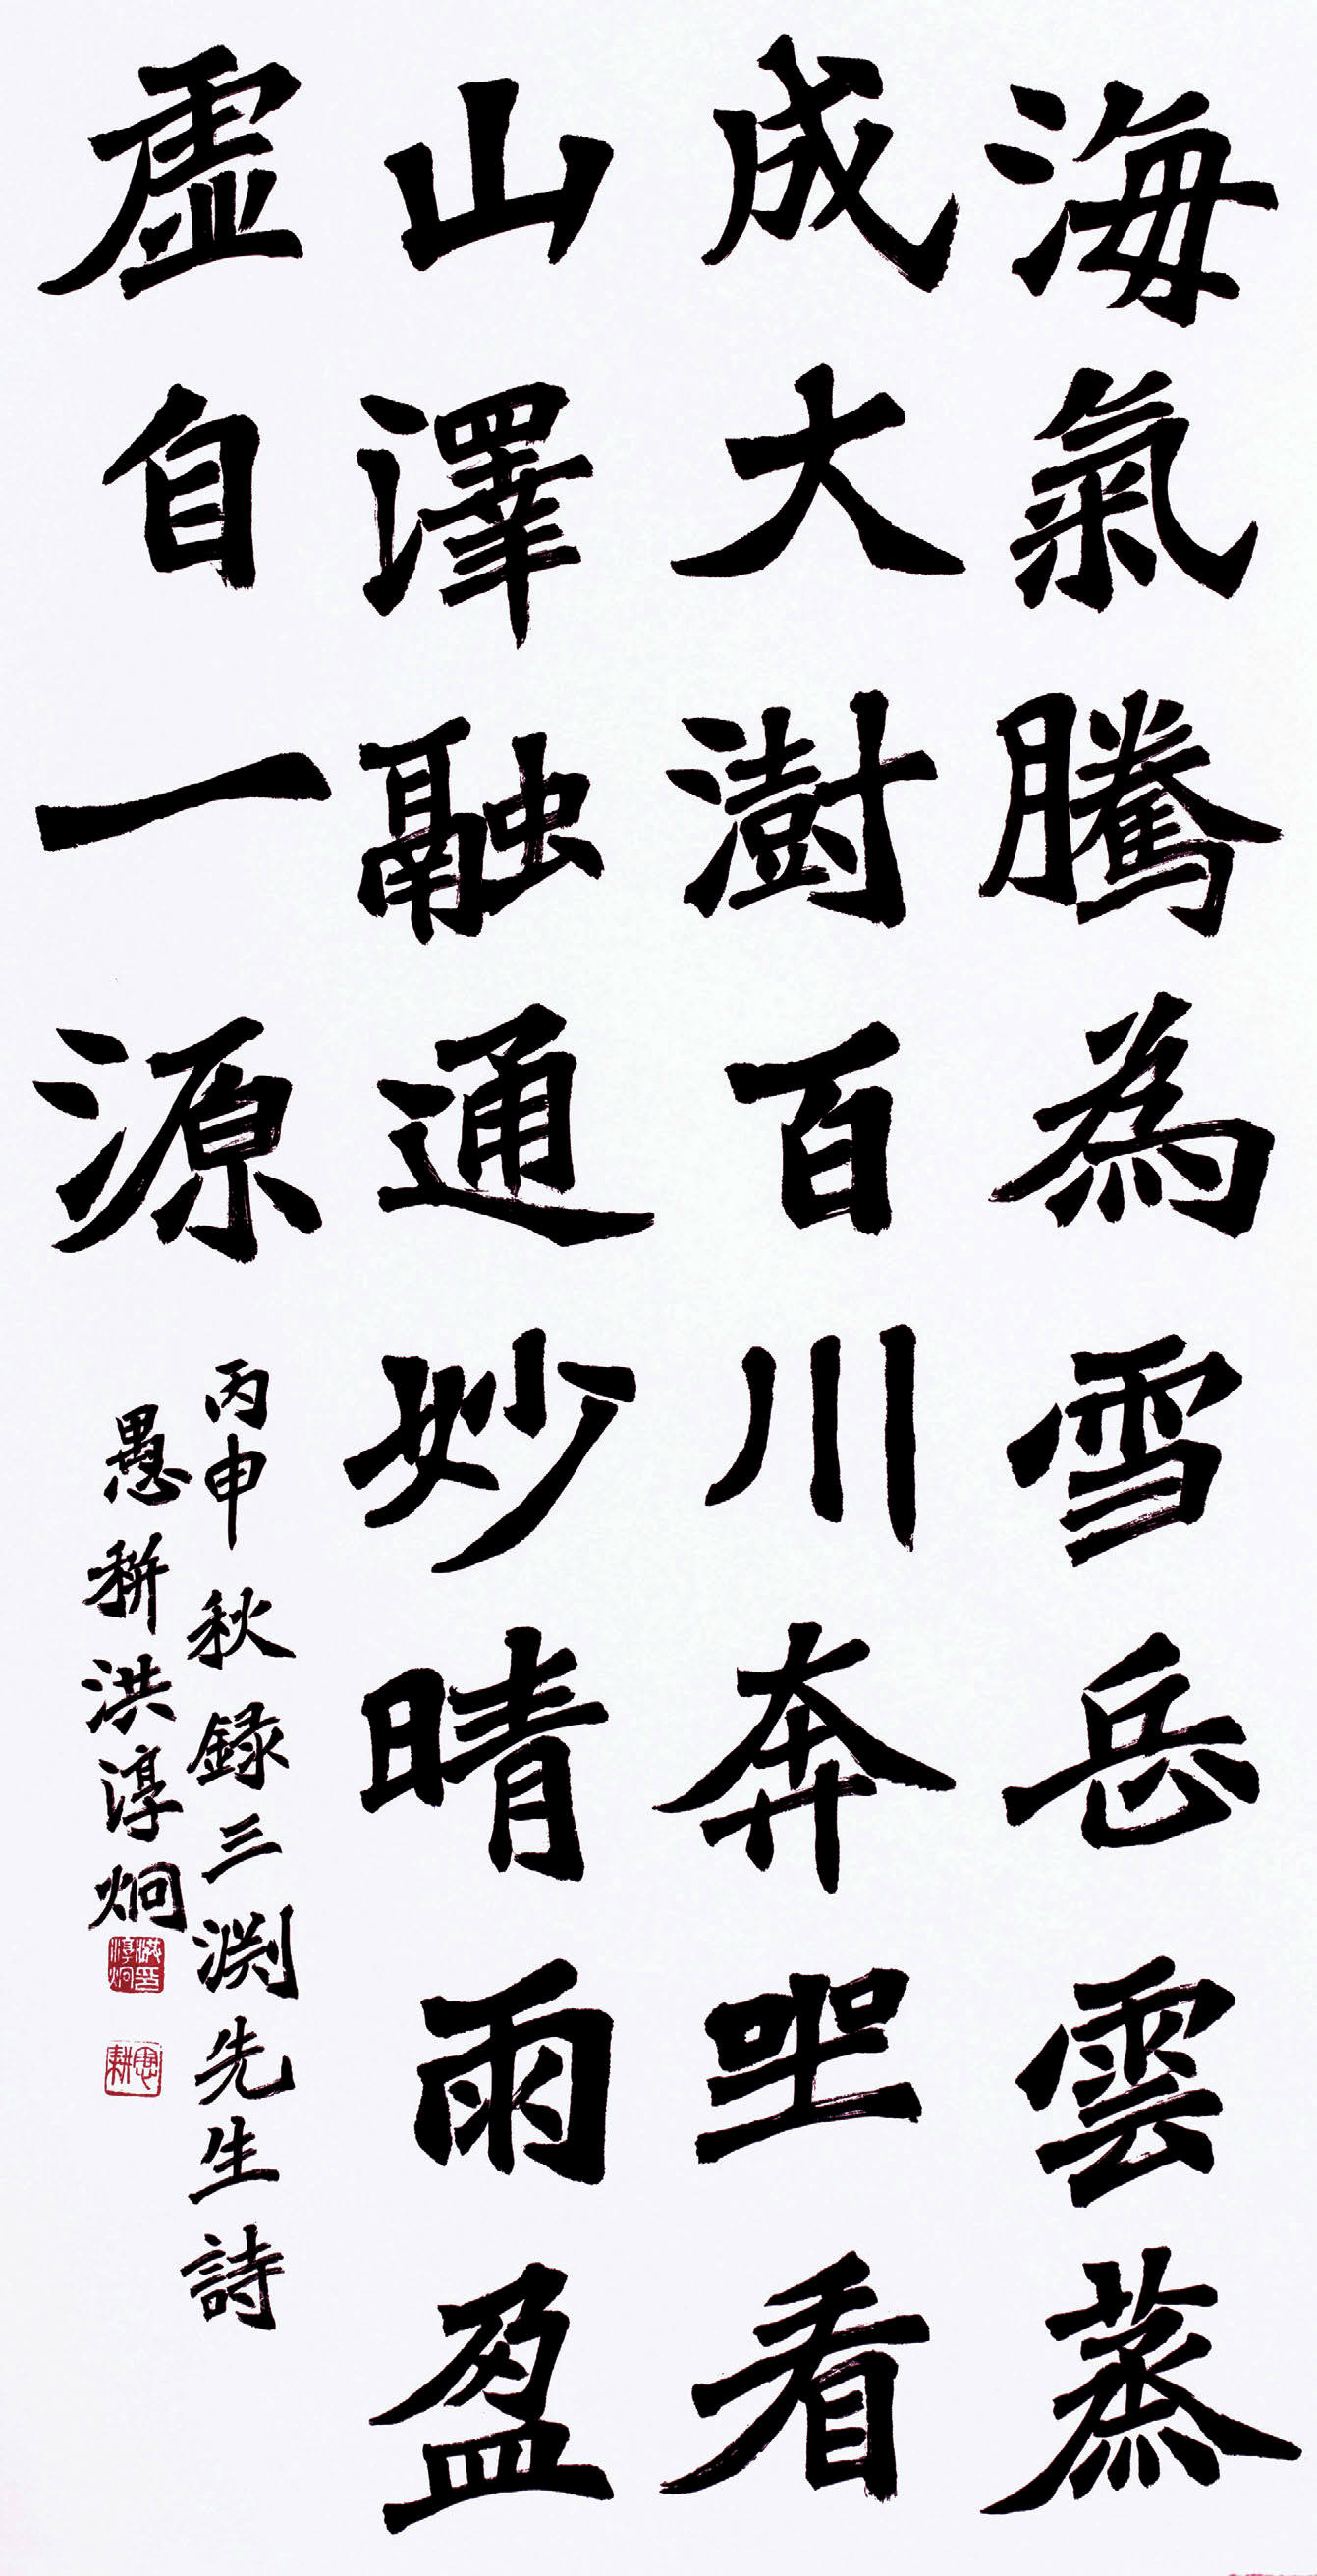 海氣騰為雪岳雲蒸
成大澍百川奔坐看
山澤融通妙晴雨盈
虛自一源
丙申秋録三淵先生詩
愚耕洪淳炯
洪淳炯印
愚耕